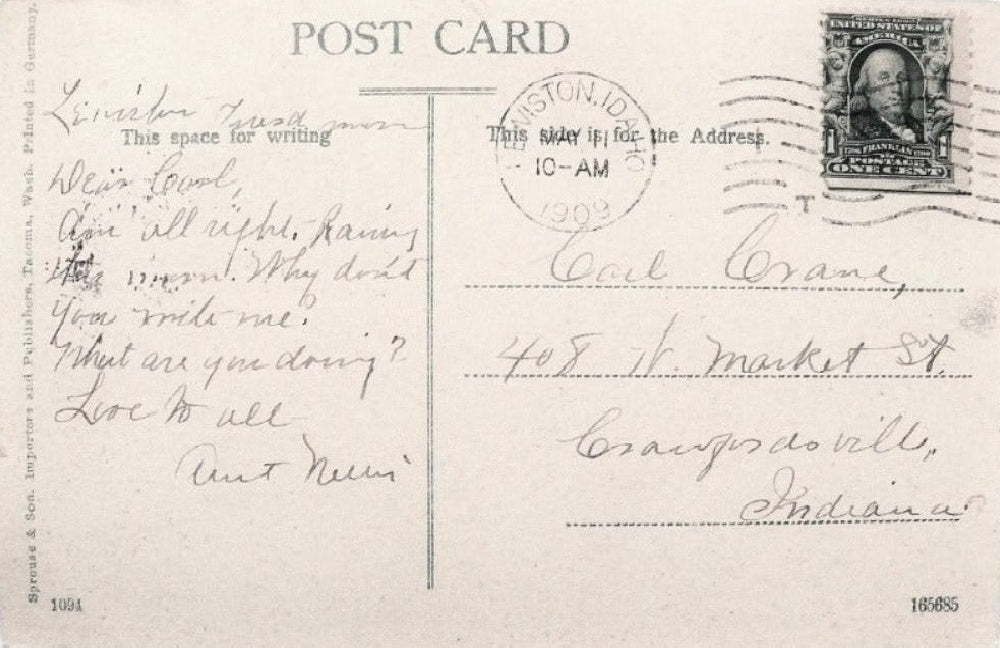 POST CARD
Lewiston Tuesd morn
This space for writing
Dear Carl,
Am all right. Raining
this morn. Why don't
You write me?
What are you doing?
Love to all
Aunt Nellie
Sprouse & Son. Importers and Publishers, Tacoma, Wash. Printed in Germany.
1091
This side is for the Address.
LEWISTON, IDAHO
MAY 11
10-AM
1909
SERIES 1902
UNITED STATES OF
AMERICA
1 1
FRANKLIN
POSTAGE
ONE CENT
T
Carl Crane,
408 W. Market St.
Crawfordsville,
Indiana
165685